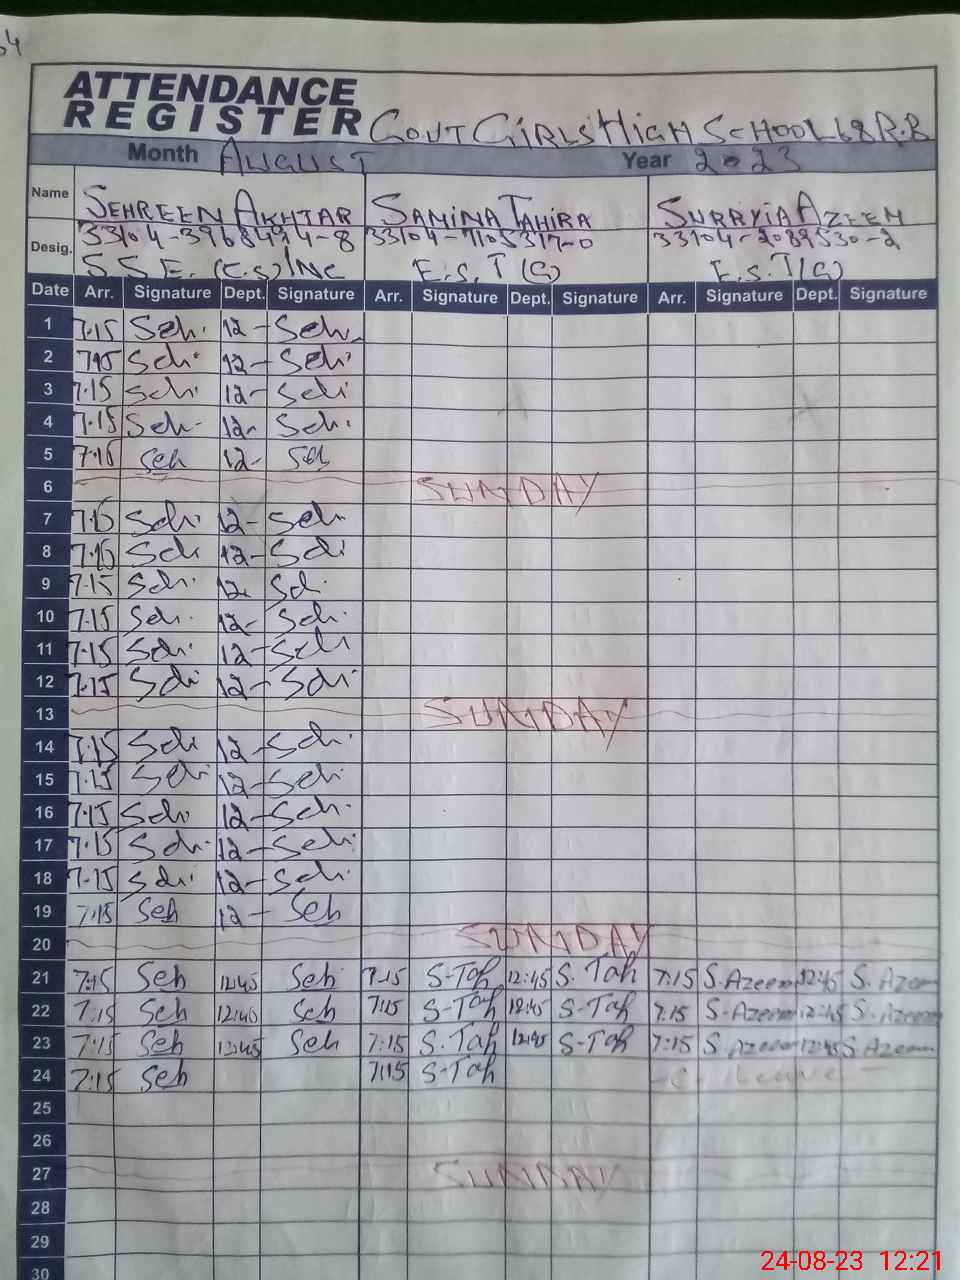 ATTENDANCE
REGISTER GOVT GIRLS HIGH SCHOOL 68 R.B
Month AUGUST Year 2023
Name SEHREEN AKHTAR SAMINA TAHIRA SURRYIA AZEEM
33104-3968494-8 33104-7105317-0 33104-2089530-2
Desig. S.S.E. (C.S) INC E.S.T (G) E.S.T (G)
Date Arr. Signature Dept. Signature Arr. Signature Dept. Signature Arr. Signature Dept. Signature
1 7.15 Seh. 12- Seh.
2 7.15 Seh. 12- Seh.
3 7.15 Seh. 12- Seh
4 7.15 Seh- 12- Seh.
5 7:15 Seh 12- Seh
6 SUNDAY
7 7.15 Seh. 12- Seh.
8 7:15 Seh 12- Seh
9 7.15 Seh. 12. Seh.
10 7.15 Seh. 12- Seh.
11 7.15 Seh. 12- Seh
12 7.15 Seh 12- Seh.
13 SUNDAY
14 7.15 Seh 12- Seh.
15 7.15 Seh 12- Seh
16 7.15 Seh 12- Seh.
17 7.15 Seh. 12- Seh
18 7.15 Seh 12- Seh.
19 7:15 Seh 12- Seh
20 SUNDAY
21 7:15 Seh 12:45 Seh 7.15 S-Tah 12:45 S. Tah 7:15 S.Azeem 12:45 S. Azeem
22 7:15 Seh 12:45 Seh 7:15 S-Tah 12:45 S-Tah 7:15 S-Azeem 12:45 S. Azeem
23 7:15 Seh 12:45 Seh 7:15 S.Tah 12:45 S-Tah 7:15 S.Azeem 12:45 S.Azeem
24 7:15 Seh 7:15 S-Tah -C. Leave-
25
26
27 SUNDAY
28
29
30
24-08-23 12:21